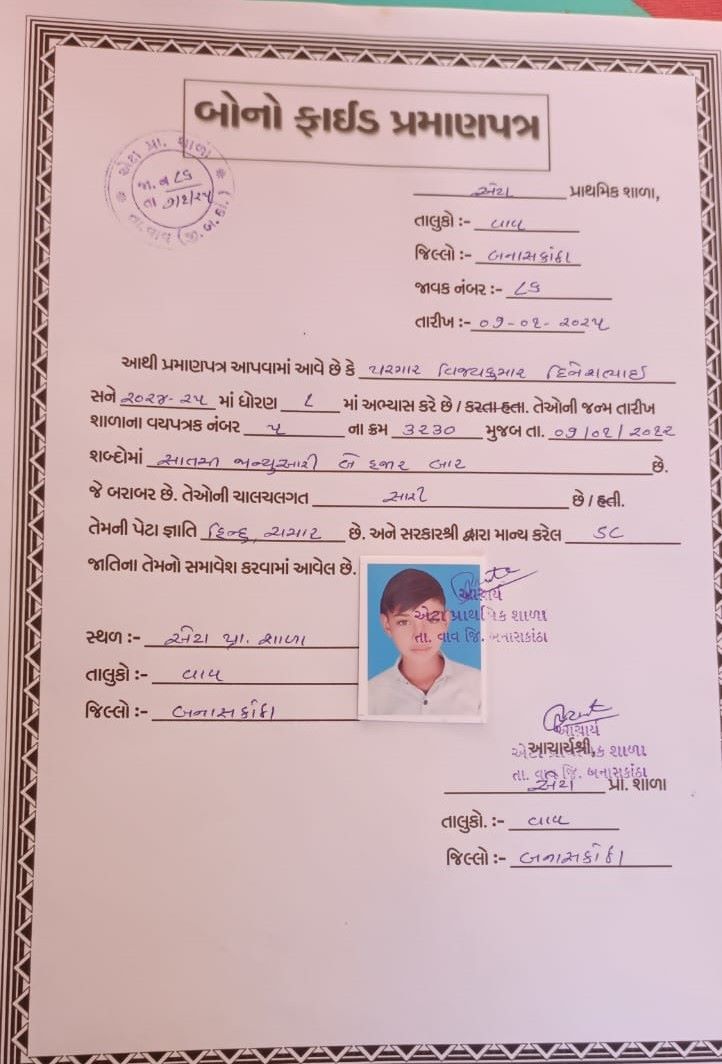 બોનો ફાઈડ પ્રમાણપત્ર
એટા પ્રા. શાળા
જા. નં ૮૬
તા ૭/૧/૨૫
તા. વાવ (જી. બ. કાં.)
એટા પ્રાથમિક શાળા,
તાલુકો :- વાવ
જિલ્લો :- બનાસકાંઠા
જાવક નંબર :- ૮૬
તારીખ :- ૦૭-૦૧-૨૦૨૫
આથી પ્રમાણપત્ર આપવામાં આવે છે કે પરમાર વિજયકુમાર દિનેશભાઈ
સને ૨૦૨૪-૨૫ માં ધોરણ ૮ માં અભ્યાસ કરે છે / કરતા હતા. તેઓની જન્મ તારીખ
શાળાના વયપત્રક નંબર ૫ ના ક્રમ ૩૨૩૦ મુજબ તા. ૦૭/૦૧/૨૦૧૨
શબ્દોમાં સાતમી જાન્યુઆરી બે હજાર બાર છે.
જે બરાબર છે. તેઓની ચાલચલગત સારી છે / હતી.
તેમની પેટા જ્ઞાતિ હિન્દુ ચમાર છે. અને સરકારશ્રી દ્વારા માન્ય કરેલ SC
જાતિના તેમનો સમાવેશ કરવામાં આવેલ છે.
આચાર્ય
એટા પ્રાથમિક શાળા
તા. વાવ જિ. બનાસકાંઠા
સ્થળ :- એટા પ્રા. શાળા
તાલુકો :- વાવ
જિલ્લો :- બનાસકાંઠા
આચાર્ય
એટા પ્રાથમિક શાળા
તા. વાવ જિ. બનાસકાંઠા
આચાર્યશ્રી,
એટા પ્રા. શાળા
તાલુકો. :- વાવ
જિલ્લો :- બનાસકાંઠા